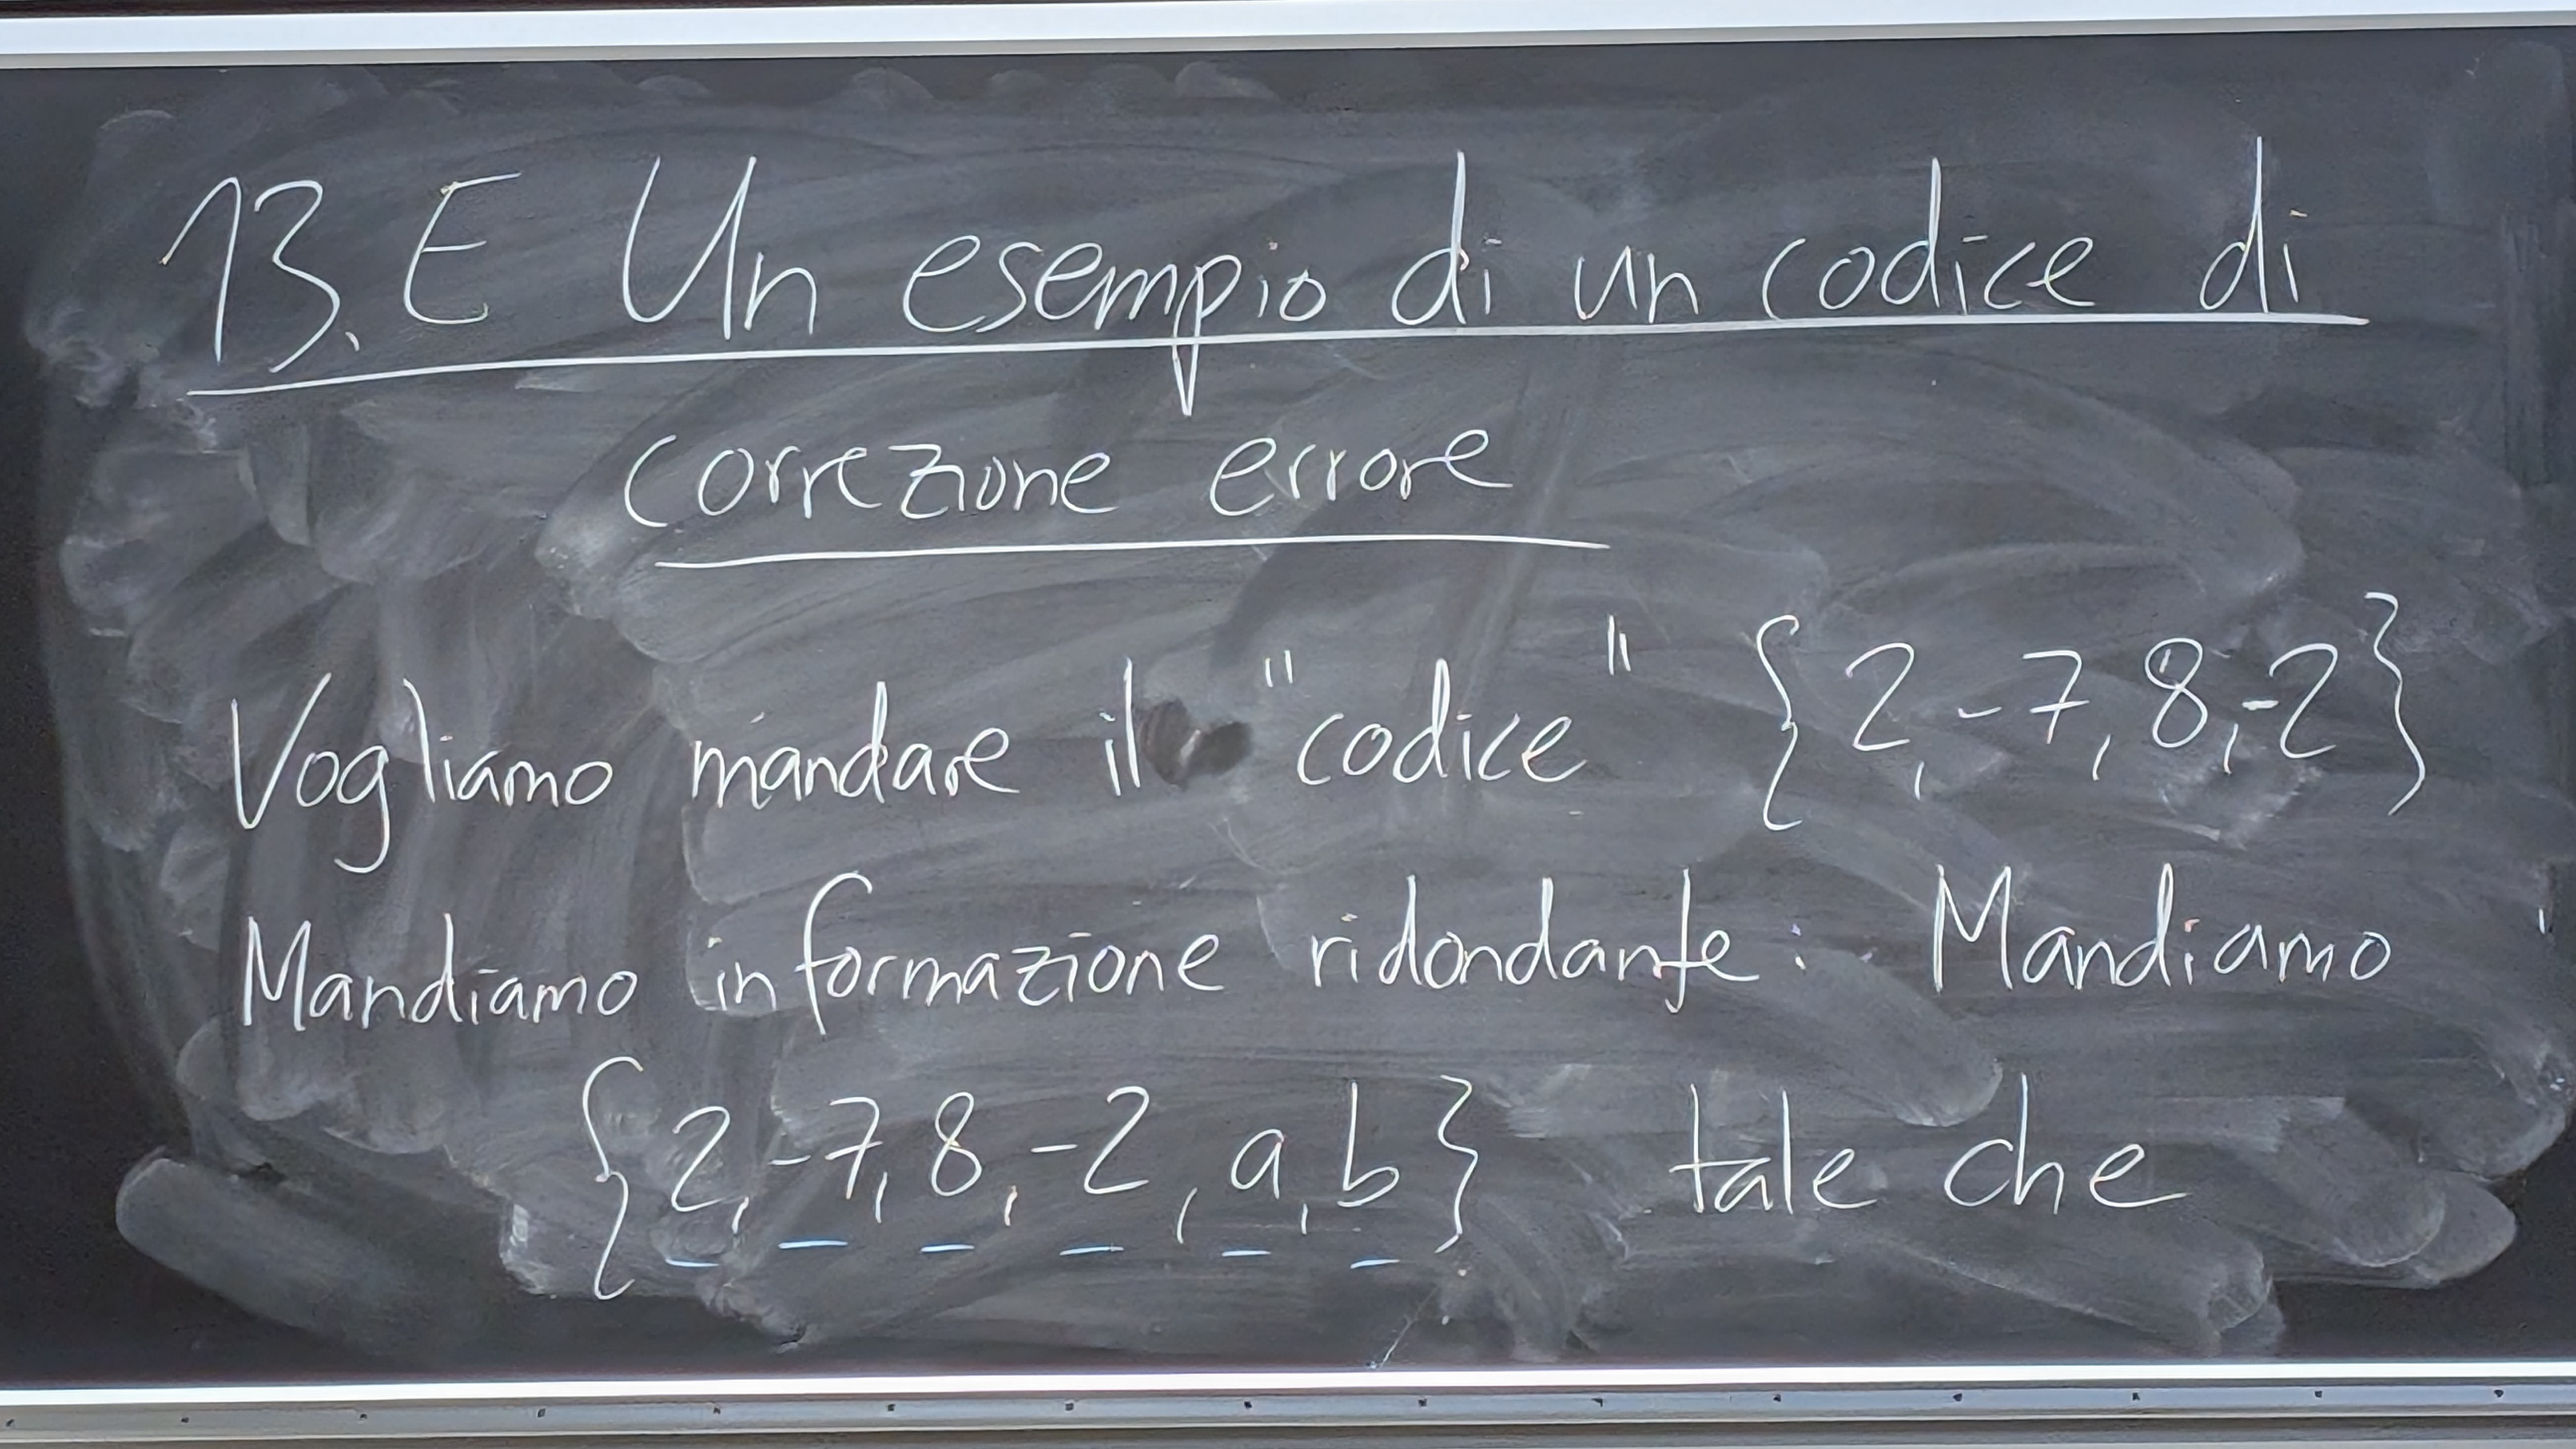 13.E Un esempio di un codice di
correzione errore
Vogliamo mandare il "codice" {2,-7,8,-2}
Mandiamo informazione ridondante: Mandiamo
{2,-7,8,-2,a,b} tale che